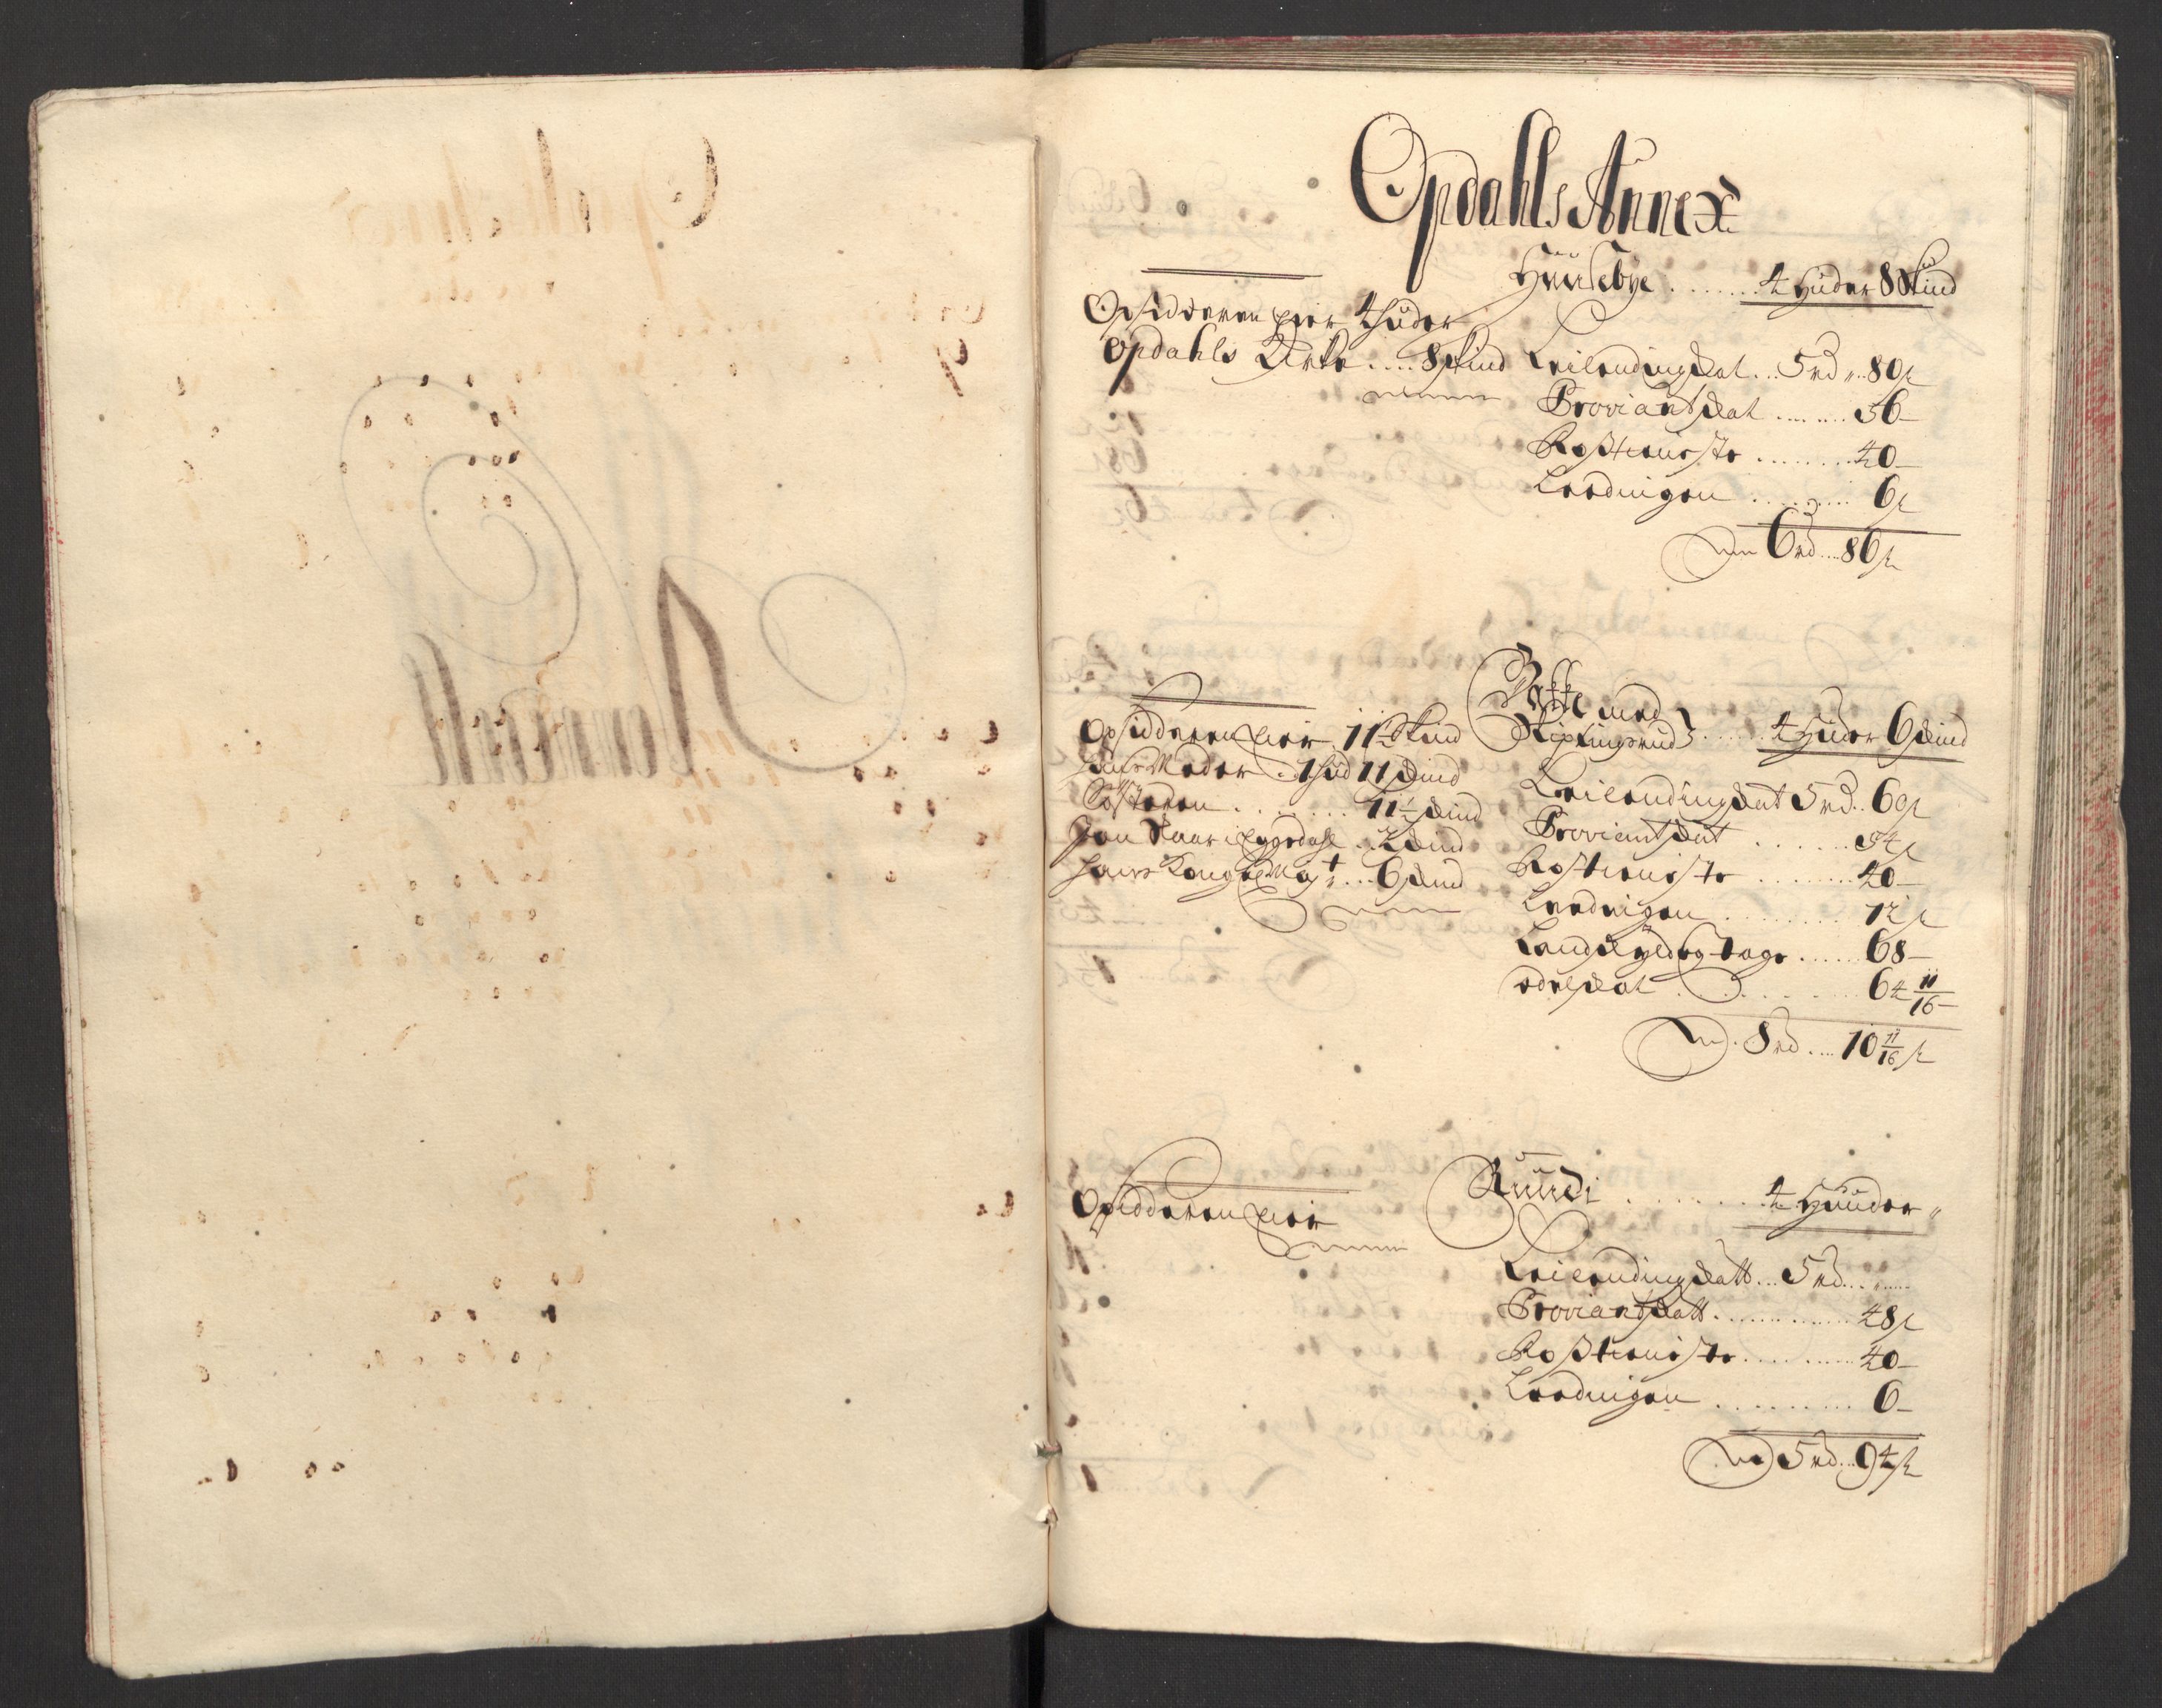 Opdahls Annex
Huusebye ....... 4 Huder 8 Skind
Opsidderen eier 4 huder
Opdahls Kirke .... 8 skind
Leilendingskat ... 5 rd „ 80 s
Proviantskat ....... 56 –
Rosstieniste ....... 40 –
Leedningen ....... 6 s
6 rd .... 86 s
Bakke med
Kiplingsrud } ..... 4 Huder 6 skind
Opsidderen eier 11 ½ skind
hans Moder . 1 hud 11 skind
Søsteren ....... 11 ½ skind
Jon Skaar i Eggedahl . 2 skind
hans Kongel May t .... 6 skind
Leilendingskat 5 rd .. 60 s
Proviantskat ...... 54 s
Rostieniste ....... 40 –
Leedningen ........ 12 s
Landskyld og Tage ..... 68 –
odelskat ....... 64 11/16 –
8 rd .... 10 11/16 s
Ruudi ....... 4 Huuder „
Opsidderen eier
Leilendingskatt ... 5 rd ... „ ....
Proviantskatt ............ 48 s
Rosstieniste ......... 40 –
Leedningen ......... 6 –
5 rd ... 94 s